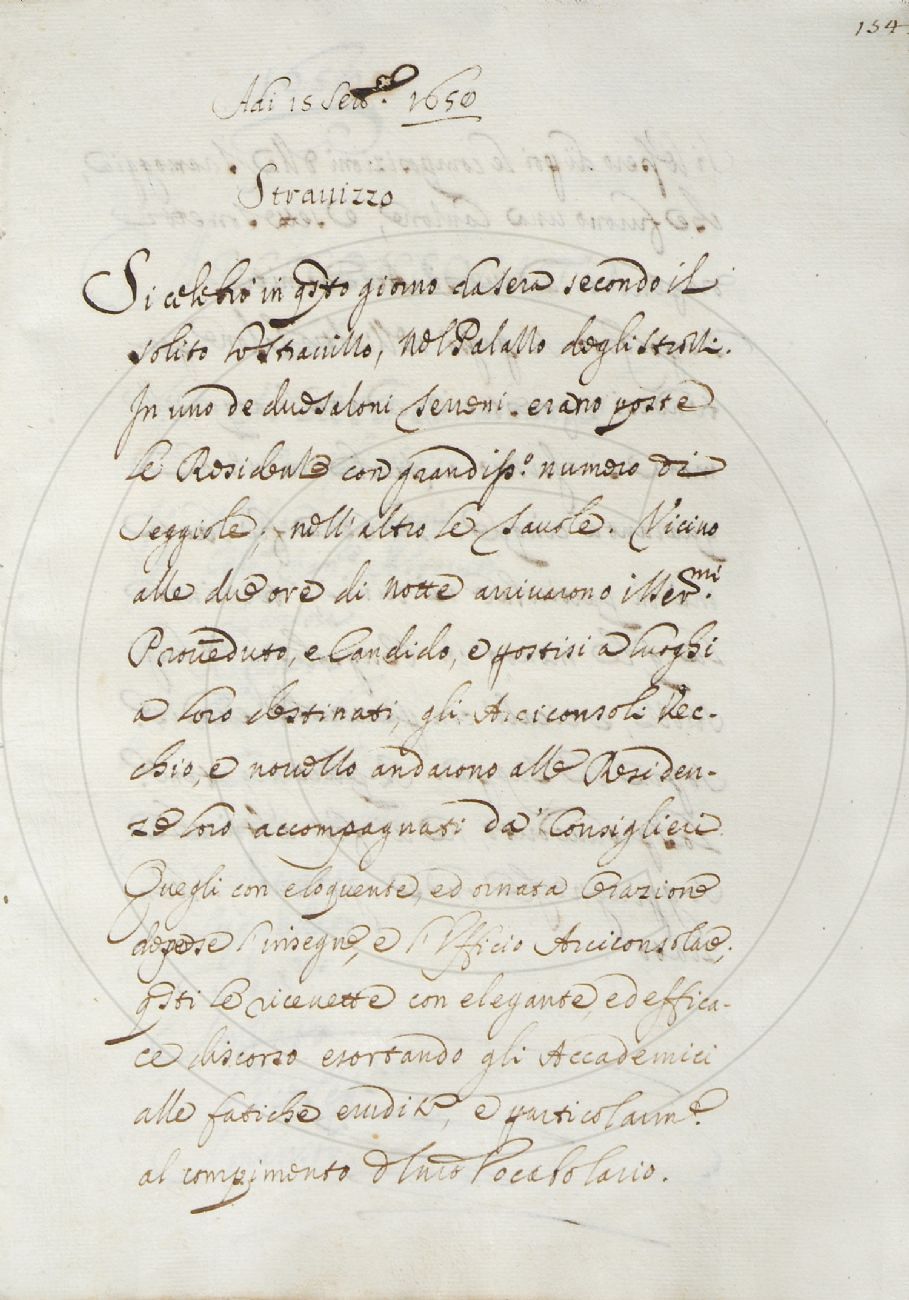 154
Adi 15 Setb.e 1650
Stravizzo
Si celebrò in qsto giorno da sera secondo il
solito lo stravizzo, nel Palazzo degli Strozzi.
In uno de due saloni terreni erano poste
le Residenze con grandiss.o numero di
seggiole, nell'altro le tavole. Vicino
alle due ore di notte arrivarono i Ser.mi
Provveduto, e Candido, e postisi a luoghi
a loro destinati, gli Arciconsoli Vec-
chio, e novello andarono alle Residen-
ze loro accompagnati da' Consiglieri
Quegli con eloquente, ed ornata Orazione
depose l'insegne, e l'Ufficio Arciconsolare;
qsti le ricevette con elegante, ed effica-
ce discorso esortando gli Accademici
alle fatiche erudite, e particolarm.e
al compimento del Vocabolario.